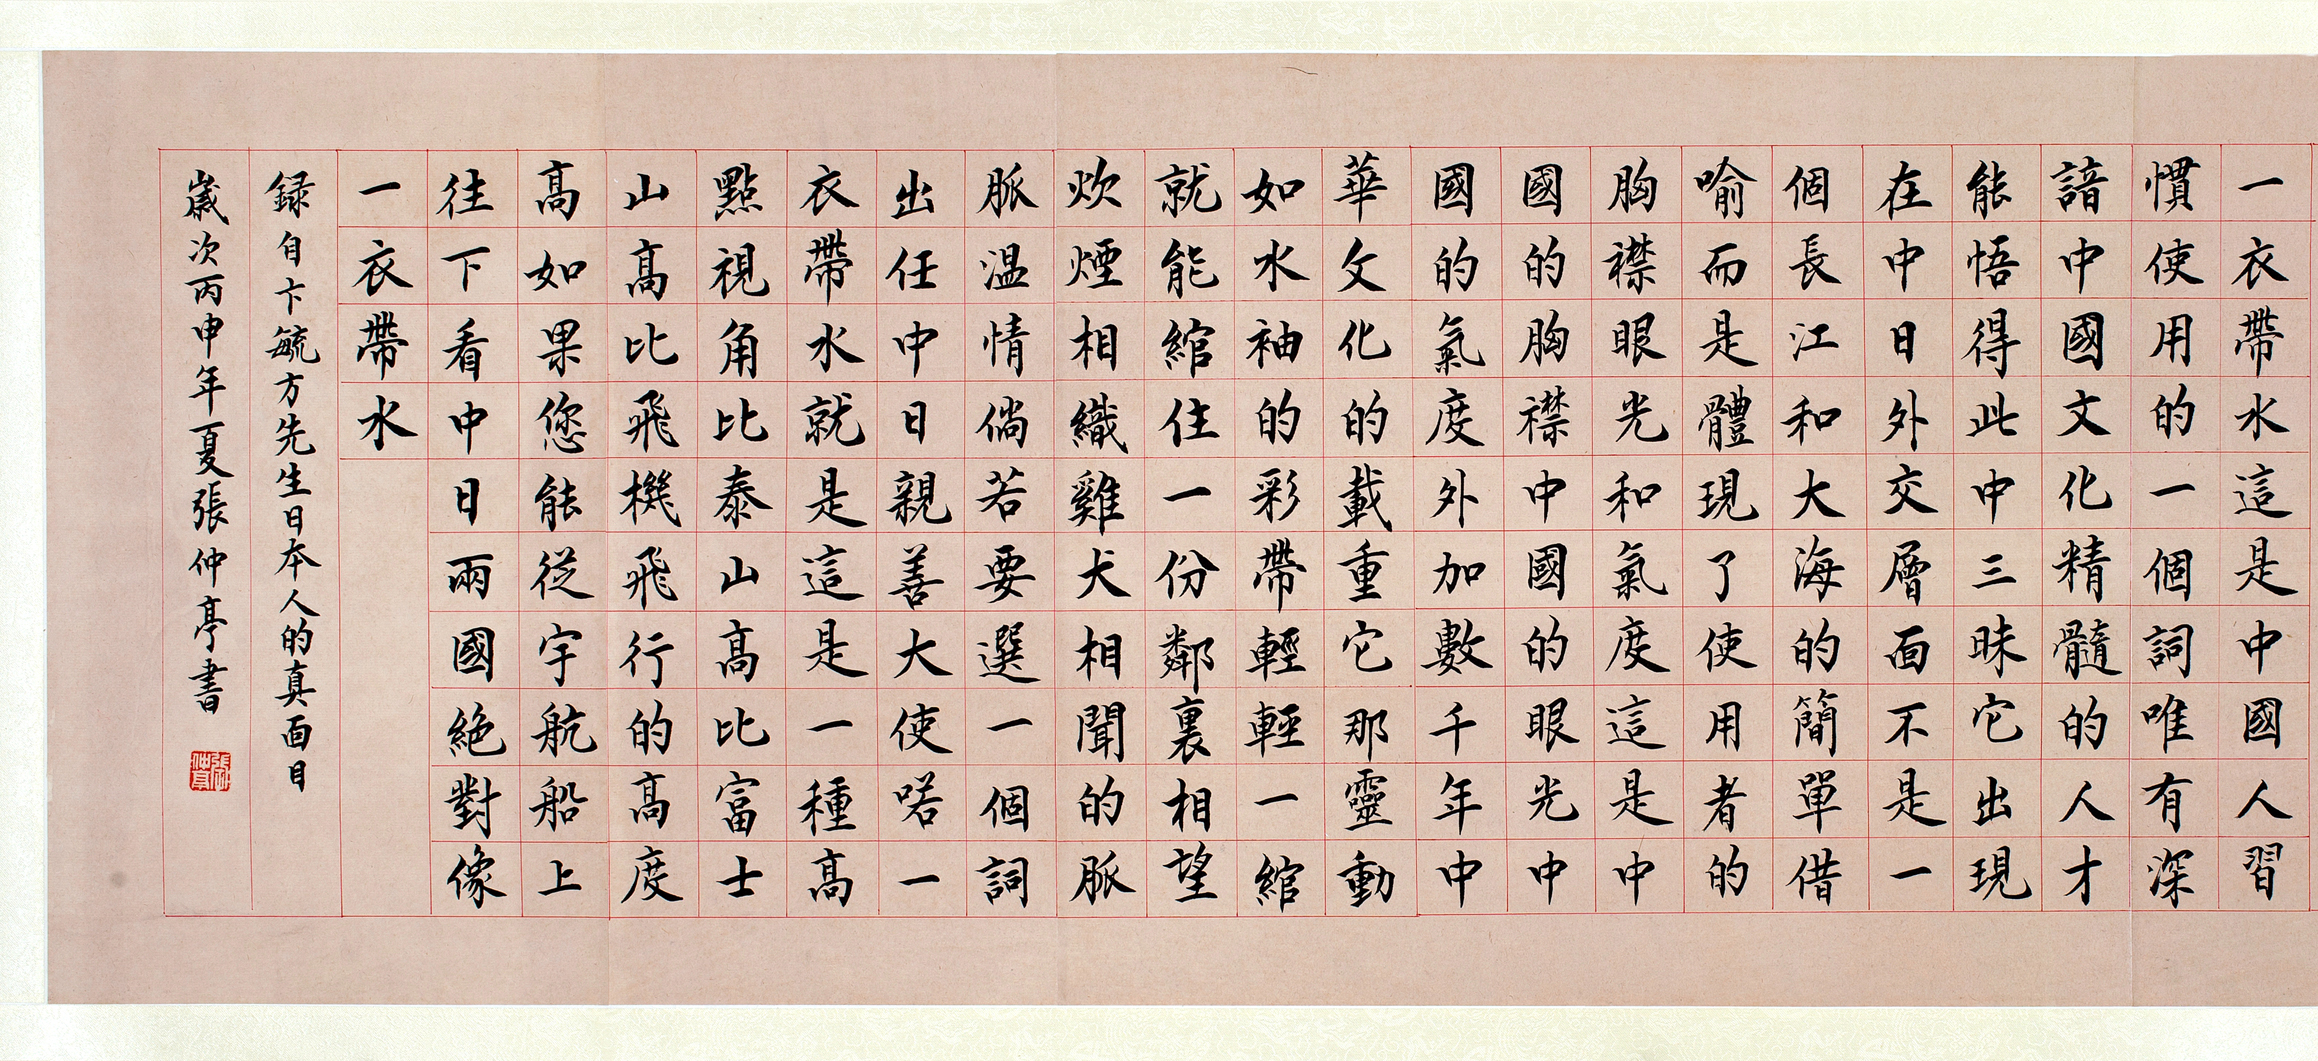 一衣帶水這是中國人習
慣使用的一個詞唯有深
諳中國文化精髓的人才
能悟得此中三昧它出現
在中日外交層面不是一
個長江和大海的簡單借
喻而是體現了使用者的
胸襟眼光和氣度這是中
國的胸襟中國的眼光中
國的氣度外加數千年中
華文化的載重它那靈動
如水袖的彩帶輕輕一綰
就能綰住一份鄰裏相望
炊煙相織雞犬相聞的脈
脈溫情倘若要選一個詞
出任中日親善大使喏一
衣帶水就是這是一種高
點視角比泰山高比富士
山高比飛機飛行的高度
高如果您能從宇航船上
往下看中日兩國絕對像
一衣帶水
録自卞毓方先生日本人的真面目
歲次丙申年夏張仲亭書
張仲亭